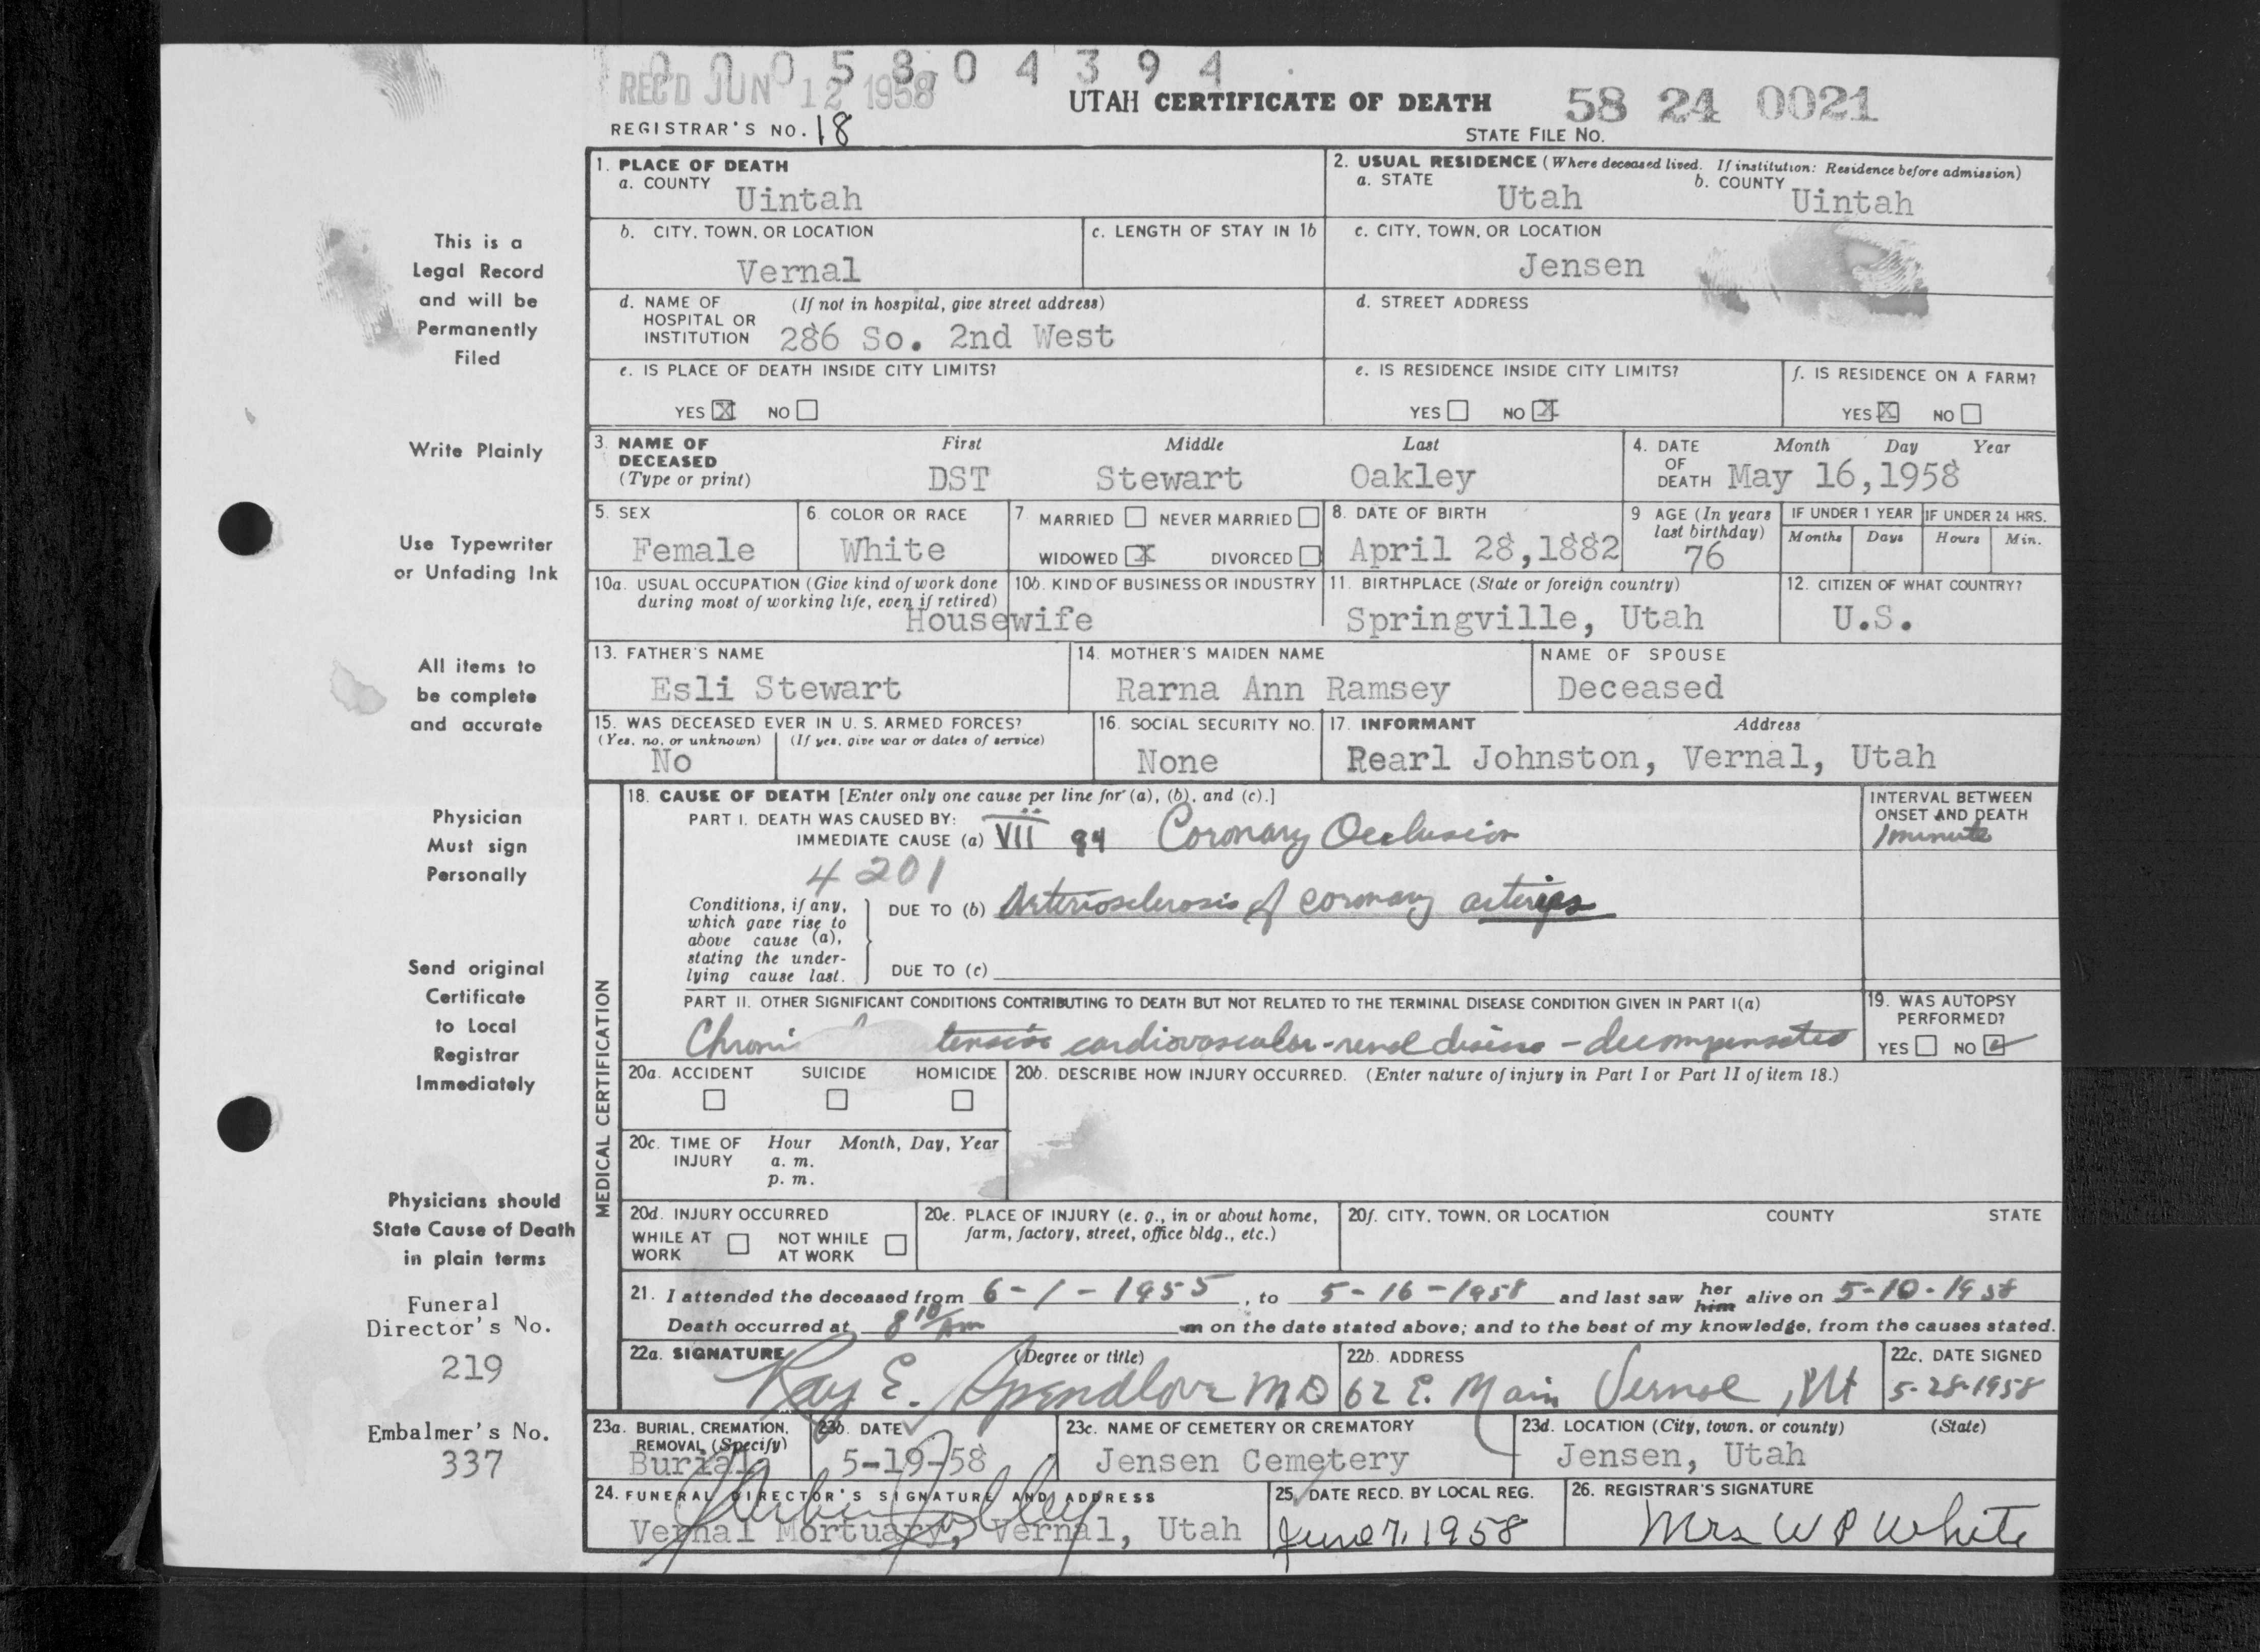 0 0 0 5 8 0 4 3 9 4
REC'D JUN 12 1958
UTAH CERTIFICATE OF DEATH
58 24 0021
REGISTRAR'S NO. 18
STATE FILE NO.
1. PLACE OF DEATH
a. COUNTY Uintah
2. USUAL RESIDENCE (Where deceased lived. If institution: Residence before admission)
a. STATE Utah b. COUNTY Uintah
b. CITY, TOWN, OR LOCATION Vernal
c. LENGTH OF STAY IN 1b
c. CITY, TOWN, OR LOCATION Jensen
d. NAME OF HOSPITAL OR INSTITUTION (If not in hospital, give street address)
286 So. 2nd West
d. STREET ADDRESS
e. IS PLACE OF DEATH INSIDE CITY LIMITS?
YES X NO
e. IS RESIDENCE INSIDE CITY LIMITS?
YES NO X
f. IS RESIDENCE ON A FARM?
YES X NO
3. NAME OF DECEASED (Type or print)
First Middle Last
DST Stewart Oakley
4. DATE OF DEATH Month Day Year
May 16,1958
5. SEX Female
6. COLOR OR RACE White
7 MARRIED NEVER MARRIED
WIDOWED X DIVORCED
8. DATE OF BIRTH April 28,1882
9 AGE (In years last birthday) 76
IF UNDER 1 YEAR Months Days
IF UNDER 24 HRS. Hours Min.
10a. USUAL OCCUPATION (Give kind of work done during most of working life, even if retired)
Housewife
10b. KIND OF BUSINESS OR INDUSTRY
11. BIRTHPLACE (State or foreign country)
Springville, Utah
12. CITIZEN OF WHAT COUNTRY?
U.S.
13. FATHER'S NAME Esli Stewart
14. MOTHER'S MAIDEN NAME Rarna Ann Ramsey
NAME OF SPOUSE Deceased
15. WAS DECEASED EVER IN U. S. ARMED FORCES?
(Yes, no, or unknown) (If yes, give war or dates of service)
No
16. SOCIAL SECURITY NO. None
17. INFORMANT Address
Rearl Johnston, Vernal, Utah
MEDICAL CERTIFICATION
18. CAUSE OF DEATH [Enter only one cause per line for (a), (b), and (c).]
PART I. DEATH WAS CAUSED BY:
IMMEDIATE CAUSE (a) VII 94 Coronary Occlusion
INTERVAL BETWEEN ONSET AND DEATH
1 minute
4201
Conditions, if any, which gave rise to above cause (a), stating the underlying cause last.
DUE TO (b) Arteriosclerosis of coronary arteries
DUE TO (c)
PART II. OTHER SIGNIFICANT CONDITIONS CONTRIBUTING TO DEATH BUT NOT RELATED TO THE TERMINAL DISEASE CONDITION GIVEN IN PART I(a)
cardiovascular-renal disease - decompensated
19. WAS AUTOPSY PERFORMED?
YES NO
20a. ACCIDENT SUICIDE HOMICIDE
20b. DESCRIBE HOW INJURY OCCURRED. (Enter nature of injury in Part I or Part II of item 18.)
20c. TIME OF INJURY Hour Month, Day, Year
a. m.
p. m.
20d. INJURY OCCURRED
WHILE AT WORK NOT WHILE AT WORK
20e. PLACE OF INJURY (e. g., in or about home, farm, factory, street, office bldg., etc.)
20f. CITY, TOWN, OR LOCATION COUNTY STATE
21. I attended the deceased from 6-1-1955, to 5-16-1958 and last saw her him alive on 5-10-1958
Death occurred at 8 10 Am m on the date stated above; and to the best of my knowledge, from the causes stated.
22a. SIGNATURE (Degree or title)
Ray E. Spendlove MD
22b. ADDRESS
62 E. Main Vernal, Ut
22c. DATE SIGNED
5-28-1958
23a. BURIAL, CREMATION, REMOVAL (Specify)
Burial
23b. DATE 5-19-58
23c. NAME OF CEMETERY OR CREMATORY
Jensen Cemetery
23d. LOCATION (City, town, or county) (State)
Jensen, Utah
24. FUNERAL DIRECTOR'S SIGNATURE AND ADDRESS
Vernal Mortuary, Vernal, Utah
25. DATE RECD. BY LOCAL REG.
June 7, 1958
26. REGISTRAR'S SIGNATURE
Mrs W P White
This is a
Legal Record
and will be
Permanently
Filed
Write Plainly
Use Typewriter
or Unfading Ink
All items to
be complete
and accurate
Physician
Must sign
Personally
Send original
Certificate
to Local
Registrar
Immediately
Physicians should
State Cause of Death
in plain terms
Funeral
Director's No.
219
Embalmer's No.
337